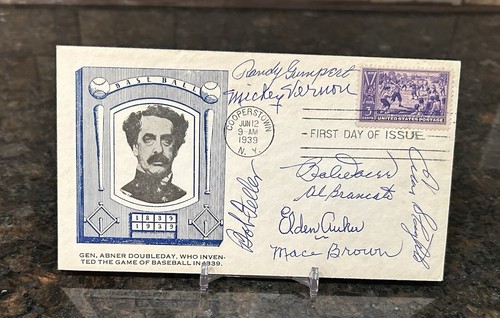 BASE BALL
1839
1939
GEN. ABNER DOUBLEDAY, WHO INVEN-
TED THE GAME OF BASEBALL IN 1839.
Randy Gumpert
Mickey Vernon
COOPERSTOWN
JUN 12
9-AM
1939
N.Y.
FIRST DAY OF ISSUE
3
CENTS
UNITED STATES POSTAGE
Bob Feller
Al Brancato
Elden Auker
Mace Brown